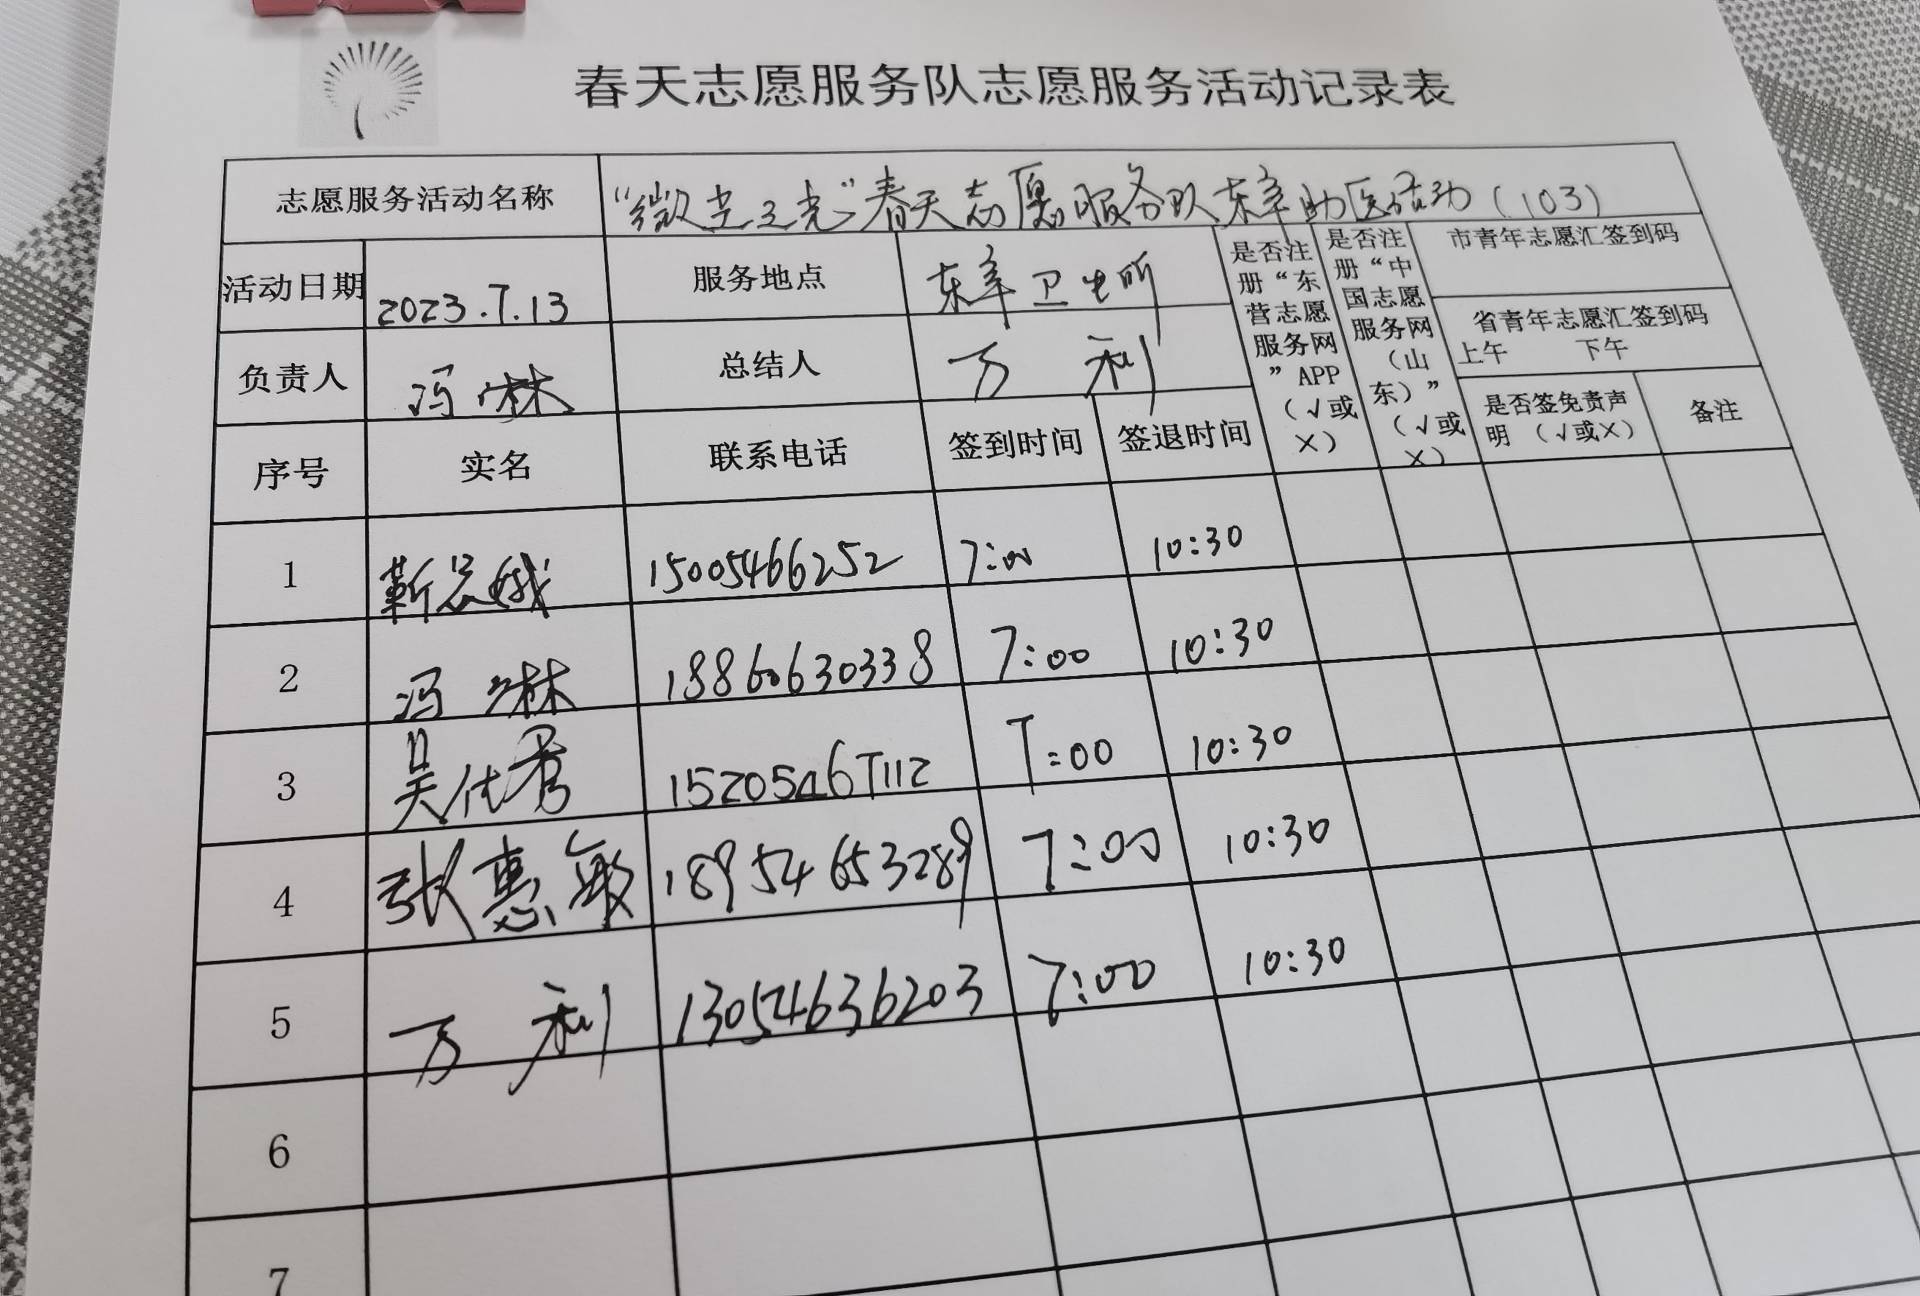 春天志愿服务队志愿服务活动记录表
志愿服务活动名称 “微尘之光”春天志愿服务队东辛助医活动(103)
活动日期 2023.7.13 服务地点 东辛卫生所
是否注册“东营志愿服务网”APP（√或×）
是否注册“中国志愿服务网（山东）”（√或×）
市青年志愿汇签到码
省青年志愿汇签到码
上午 下午
负责人 冯琳 总结人 万利
是否签免责声明（√或×） 备注
序号 实名 联系电话 签到时间 签退时间
1 靳娥 15005466252 7:00 10:30
2 冯琳 18860630338 7:00 10:30
3 吴代秀 15205467112 7:00 10:30
4 张惠敏 18954653289 7:00 10:30
5 万利 13054636203 7:00 10:30
6
7